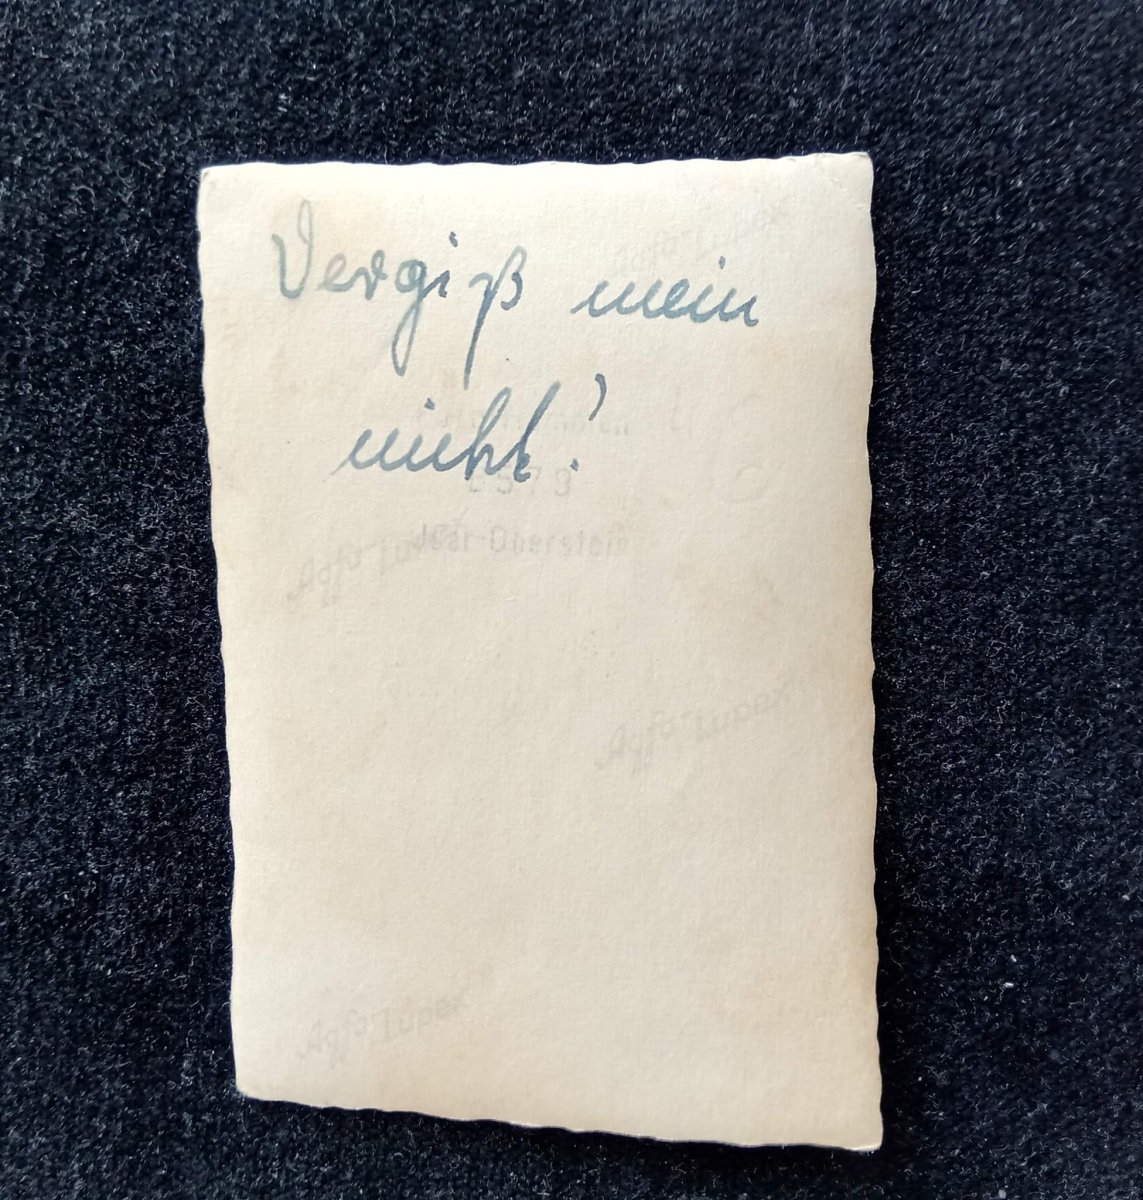 Vergiß mein
nicht!
Agfa Lupex
Idar-Oberstein
Agfa Lupex
Agfa Lupex
Agfa Lupex